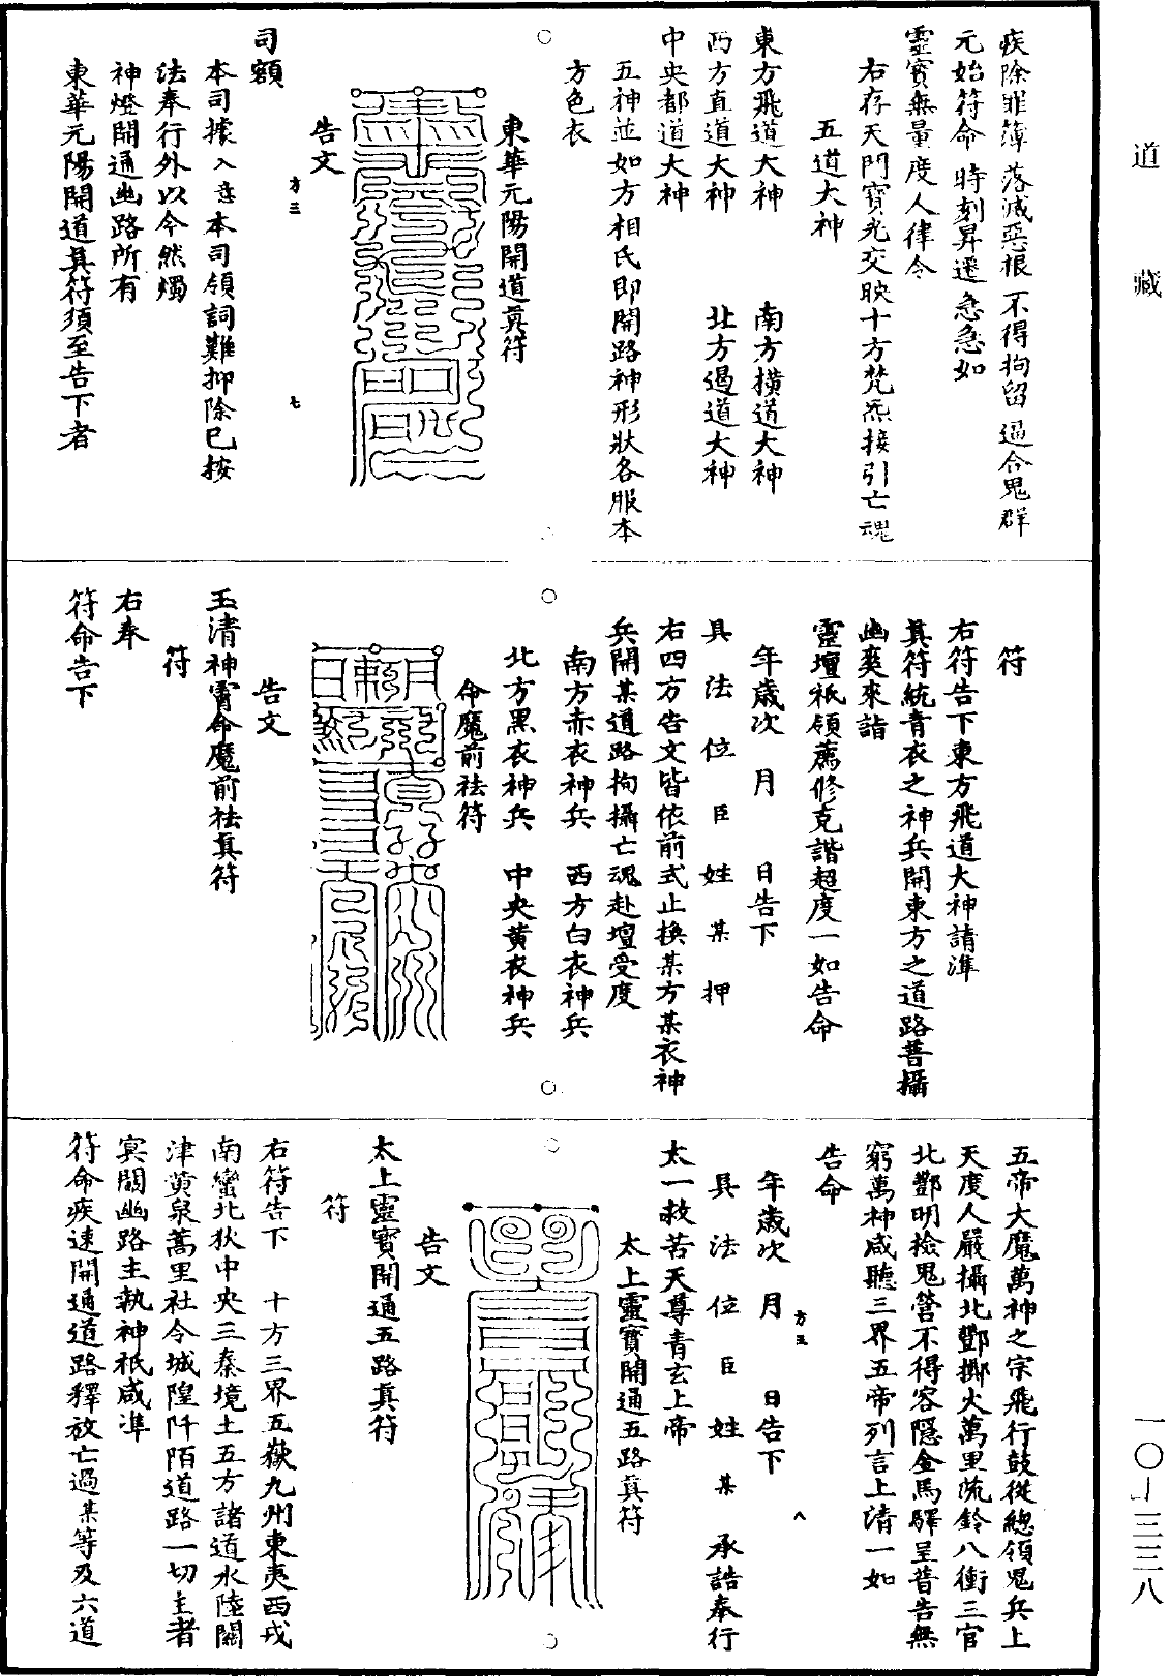 道藏
疾除罪簿 落滅惡根 不得拘留 逼合鬼群
元始符命 時刻昇遷 急急如
靈寶無量度人律令
右存天門寶光交映十方梵炁接引亡魂
五道大神
東方飛道大神 南方橫道大神
西方直道大神 北方過道大神
中央都道大神
五神並如方相氏即開路神形狀各服本
方色衣
東華元陽開道真符
告文
方三 七
司額
本司據入意本司領詞難抑除已按
法奉行外以今然燭
神燈開通幽路所有
東華元陽開道真符須至告下者
符
右符告下東方飛道大神請準
真符統青衣之神兵開東方之道路普攝
幽爽來詣
靈壇祇領薦修克諧超度一如告命
年歲次 月 日告下
具法位臣姓某押
右四方告文皆依前式止換某方某衣神
兵開某道路拘攝亡魂赴壇受度
南方赤衣神兵 西方白衣神兵
北方黑衣神兵 中央黃衣神兵
命魔前祛符
告文
玉清神霄命魔前祛真符
符
右奉
符命告下
五帝大魔萬神之宗飛行鼓從總領鬼兵上
天度人嚴攝北酆擲火萬里流鈴八衝三官
北酆明檢鬼營不得容隱金馬驛呈普告無
窮萬神咸聽三界五帝列言上清一如
告命
方三 八
年歲次 月 日告下
具法位臣姓某 承誥奉行
太一救苦天尊青玄上帝
太上靈寶開通五路真符
告文
太上靈寶開通五路真符
符
右符告下 十方三界五嶽九州東夷西戎
南蠻北狄中央三秦境土五方諸道水陸關
津黃泉蒿里社令城隍阡陌道路一切主者
冥關幽路主執神祇咸準
符命疾速開通道路釋放亡過某等及六道
一〇—三三八